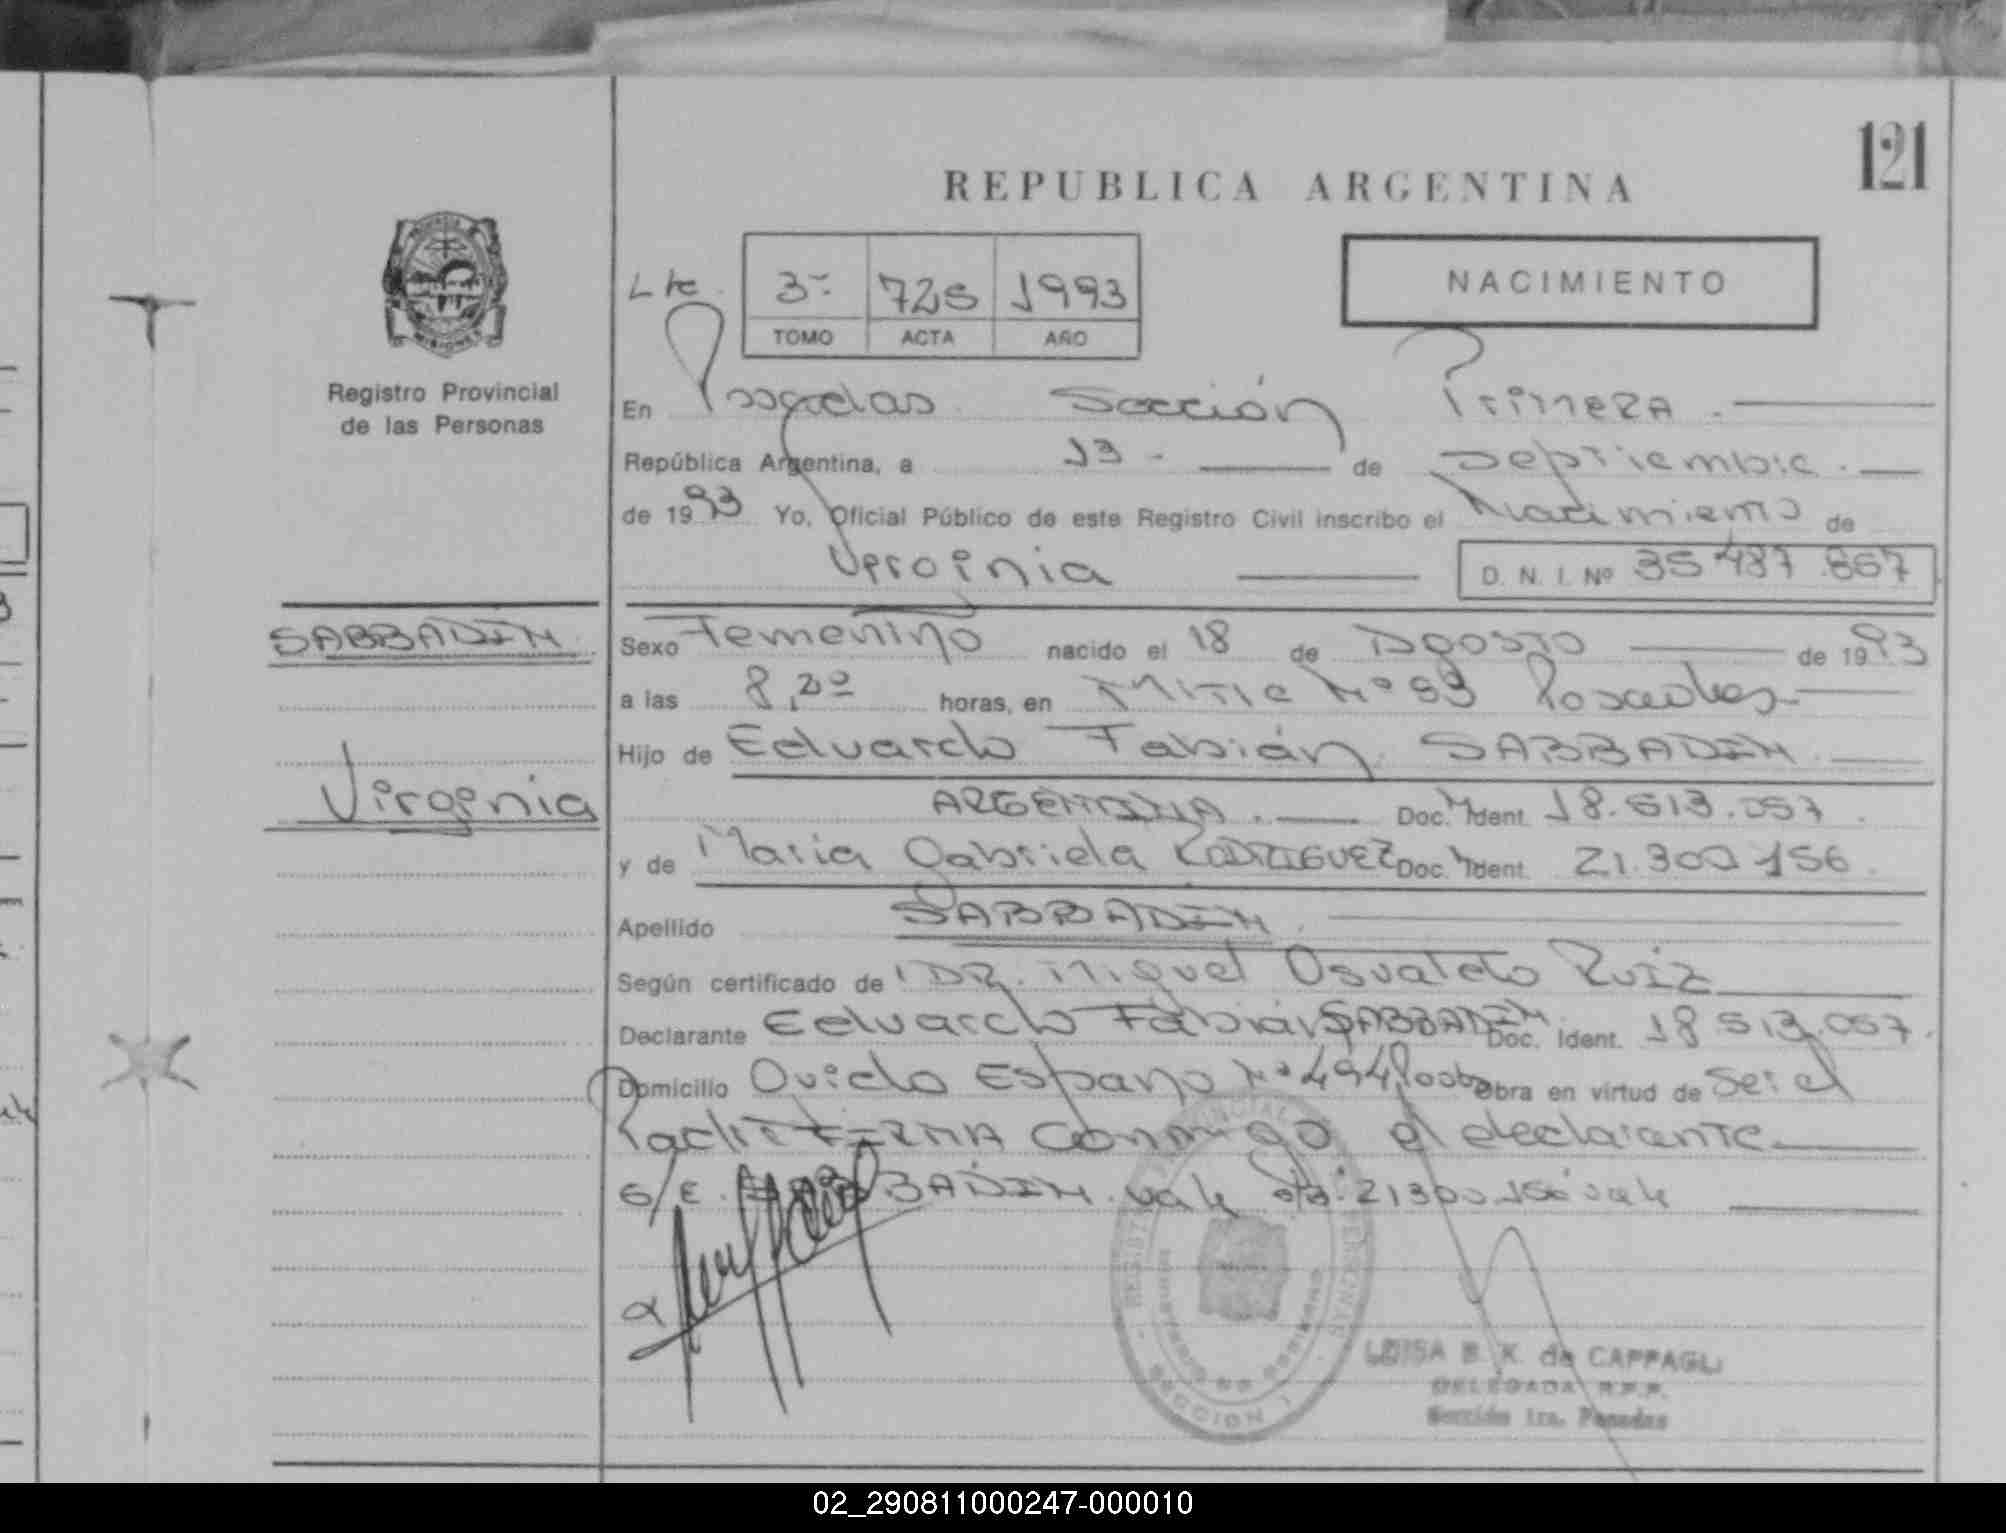 121
REPUBLICA ARGENTINA
NACIMIENTO
3º 725 1993
TOMO ACTA AÑO
Registro Provincial
de las Personas
En Posadas Sección Primera
República Argentina, a 13 de Septiembre
de 1993 Yo, Oficial Público de este Registro Civil inscribo el Nacimiento de
Virginia D. N. I. Nº 35 487 867
SABBADIN
Virginia
Sexo Femenino nacido el 18 de Agosto de 1993
a las 8,20 horas, en Mitre Nº 93 Posadas
Hijo de Eduardo Fabián SABBADIN
ARGENTINA Doc. Ident. 18.513.057
y de Maria Gabriela RODRIGUEZ Doc. Ident. 21.300 156
Apellido SABBADIN
Según certificado de DR. Miguel Osvaldo Ruiz
Declarante Eduardo Fabián SABBADIN Doc. Ident. 18 513.057
Domicilio Ovidio Nº 494 obra en virtud de Ser el
Padre FIRMA conmigo el declarante
S/E. SABBADIN. vale 21300.156 vale
SECCION 1
LUISA B. K. de CAPPAGLI
DELEGADA R.P.P.
Sección 1ra. Posadas
02_290811000247-000010